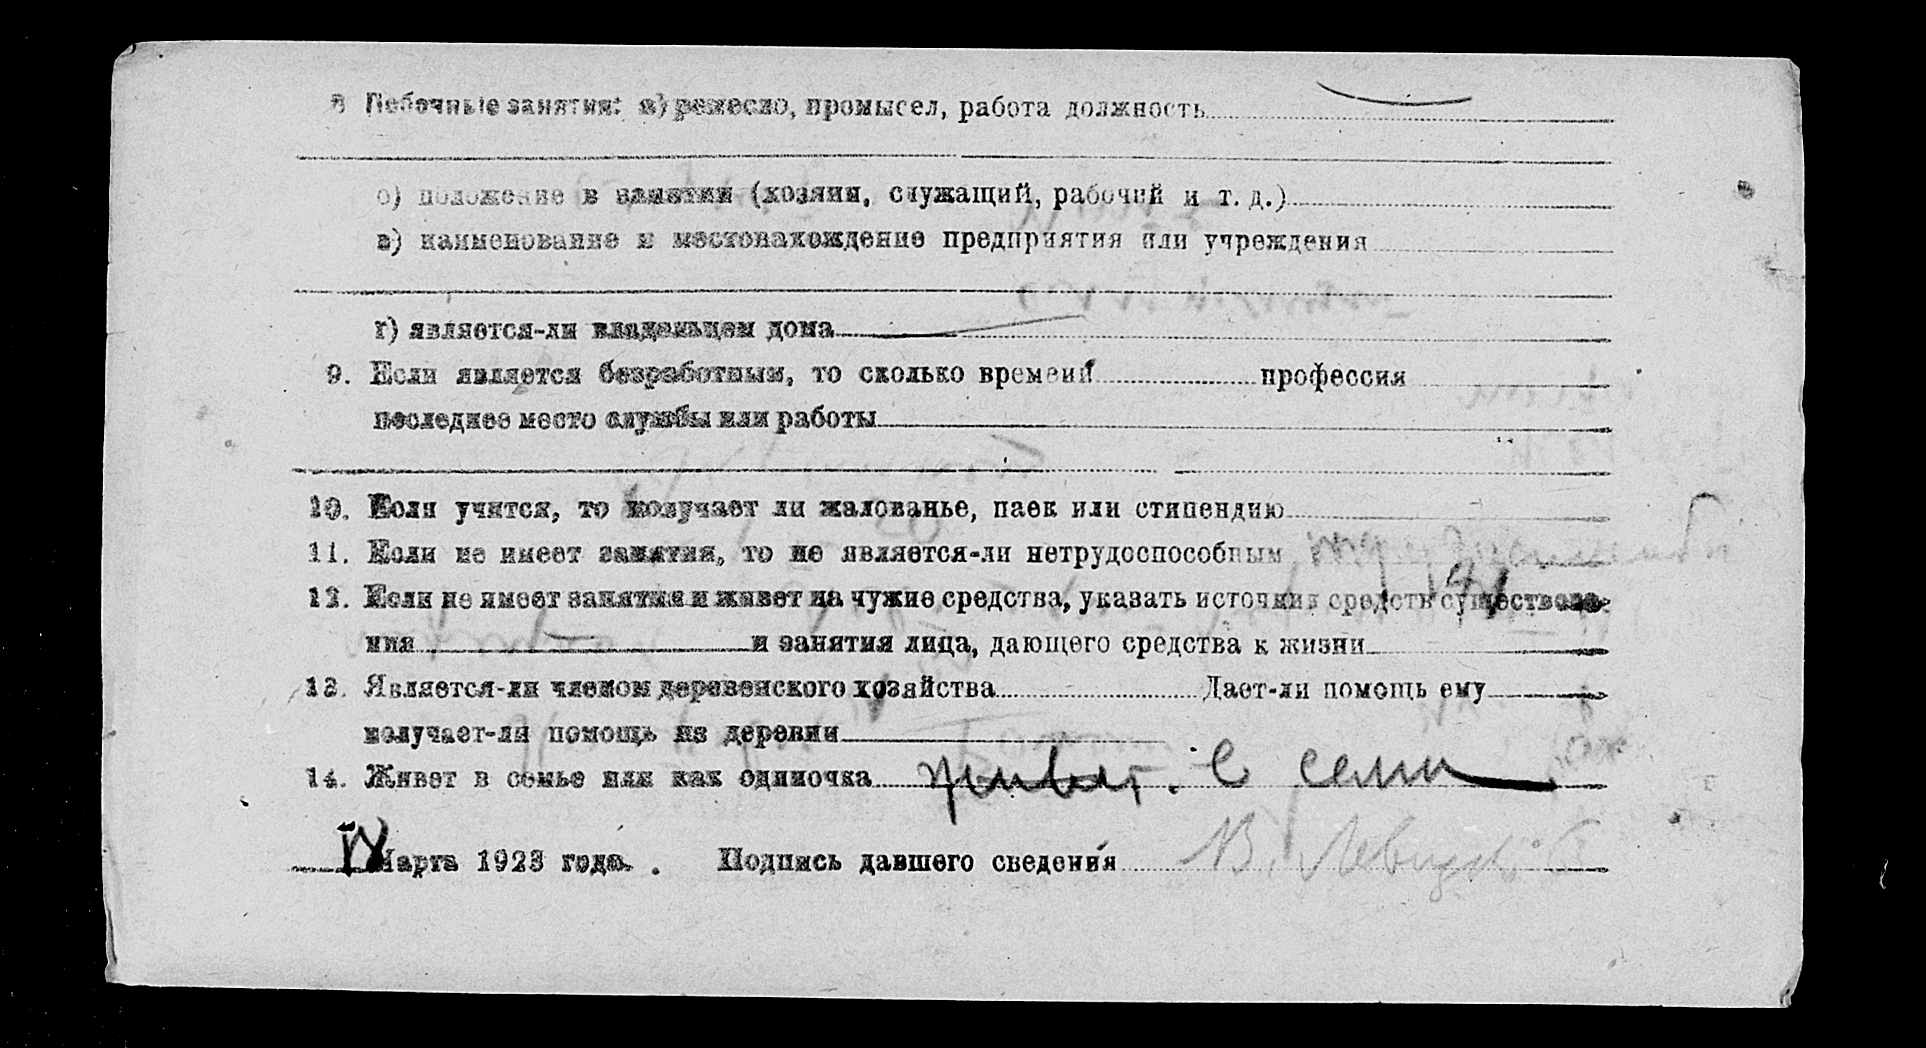 8 Побочные занятия: а) ремесло, промысел, работа должность
б) положение в занятии (хозяин, служащий, рабочий и т. д.)
в) наименование и местонахождение предприятия или учреждения
г) является-ли владельцем дома
9. Если является безработным, то сколько времени профессия
последнее место службы или работы
10. Если учится, то получает ли жалованье, паек или стипендию
11. Если не имеет занятия, то не является-ли нетрудоспособным
12. Если не имеет занятия и живет на чужие средства, указать источник средств существова-
ния и занятия лица, дающего средства к жизни
13. Является-ли членом деревенского хозяйства Дает-ли помощь ему
получает-ли помощь из деревни
14. Живет в семье или как одиночка живет. С семи
Марта 1923 года. Подпись давшего сведения